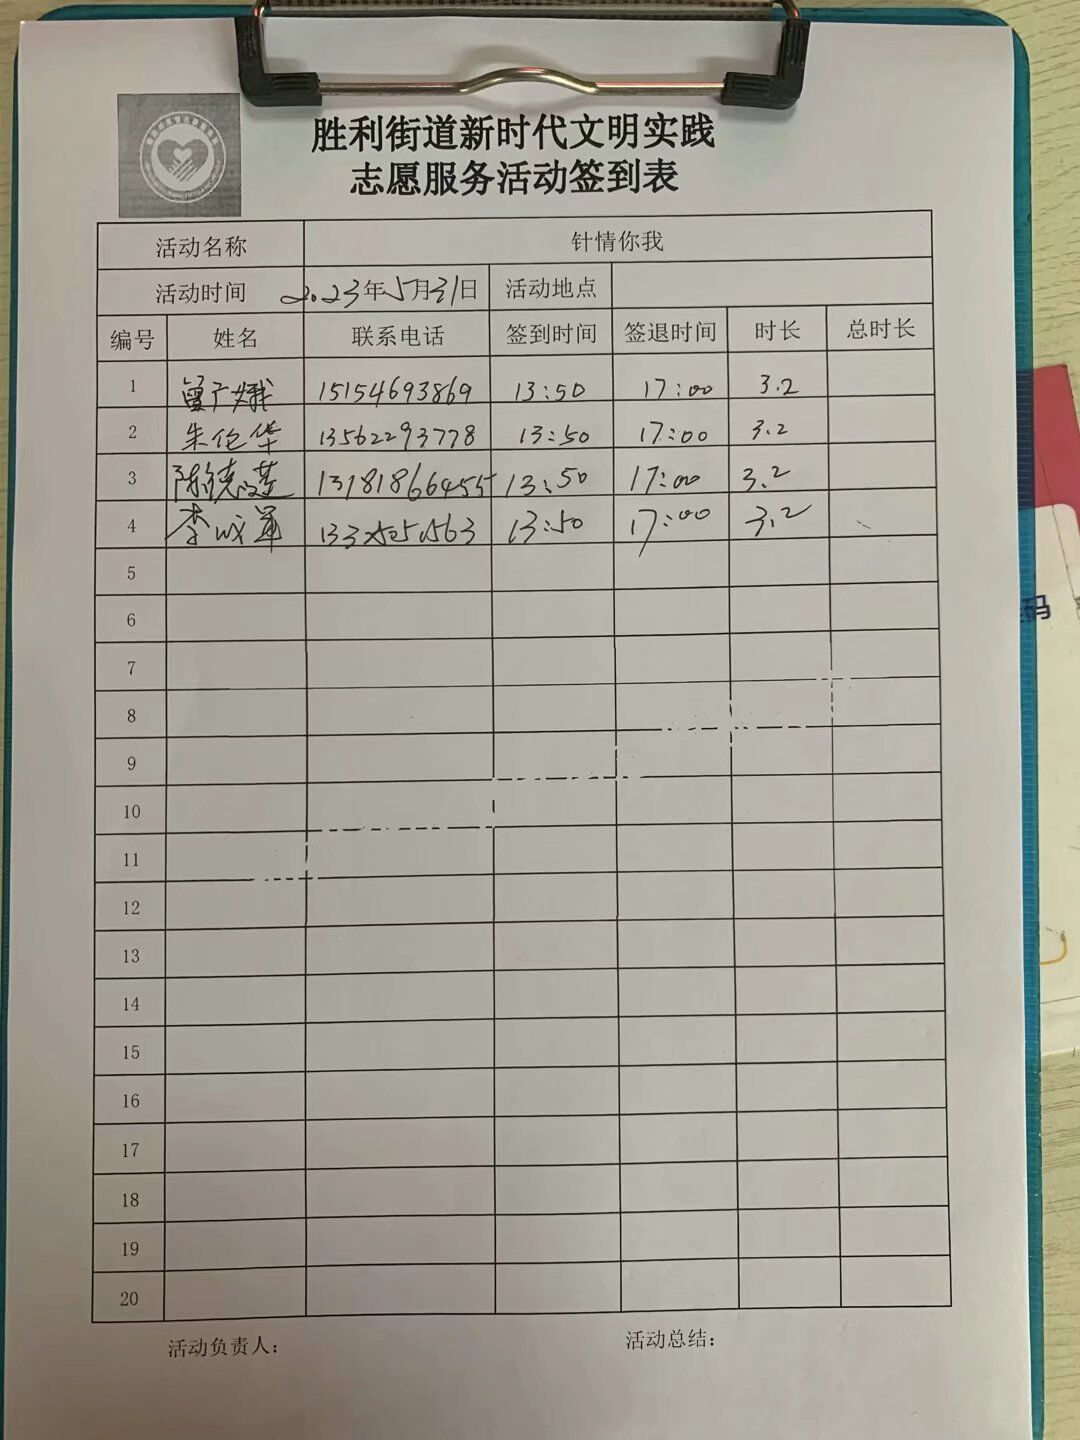 胜利街道新时代文明实践
志愿服务活动签到表
活动名称 针情你我
活动时间 2023年5月31日 活动地点
编号 姓名 联系电话 签到时间 签退时间 时长 总时长
1 曾广娥 15154693869 13:50 17:00 3.2
2 朱伦华 13562293778 13:50 17:00 3.2
3 陈德 13181866455 13:50 17:00 3.2
4 李成军 13:50 17:00 3.2
5
6
7
8
9
10
11
12
13
14
15
16
17
18
19
20
活动负责人: 活动总结:
码